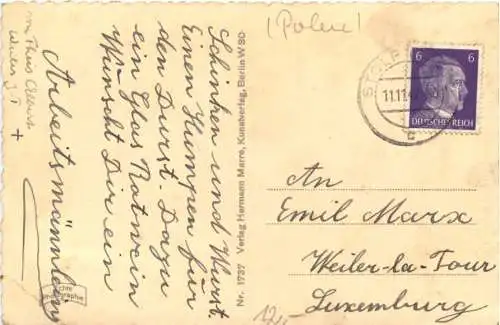 (Polen)
Schinken und Wurst.
Einen Humpen für
den Durst. Dazu
ein Glas Rotwein
Wünscht Dir ein
Arbeitsmännlein
+
Nr. 1737 Verlag Hermann Marre, Kunstverlag, Berlin W 30
STOLP
11.11.4
c
6 6
DEUTSCHES REICH
An
Emil Marx
Weiler-la-Tour
Luxemburg
12,-
Echte
Photographie